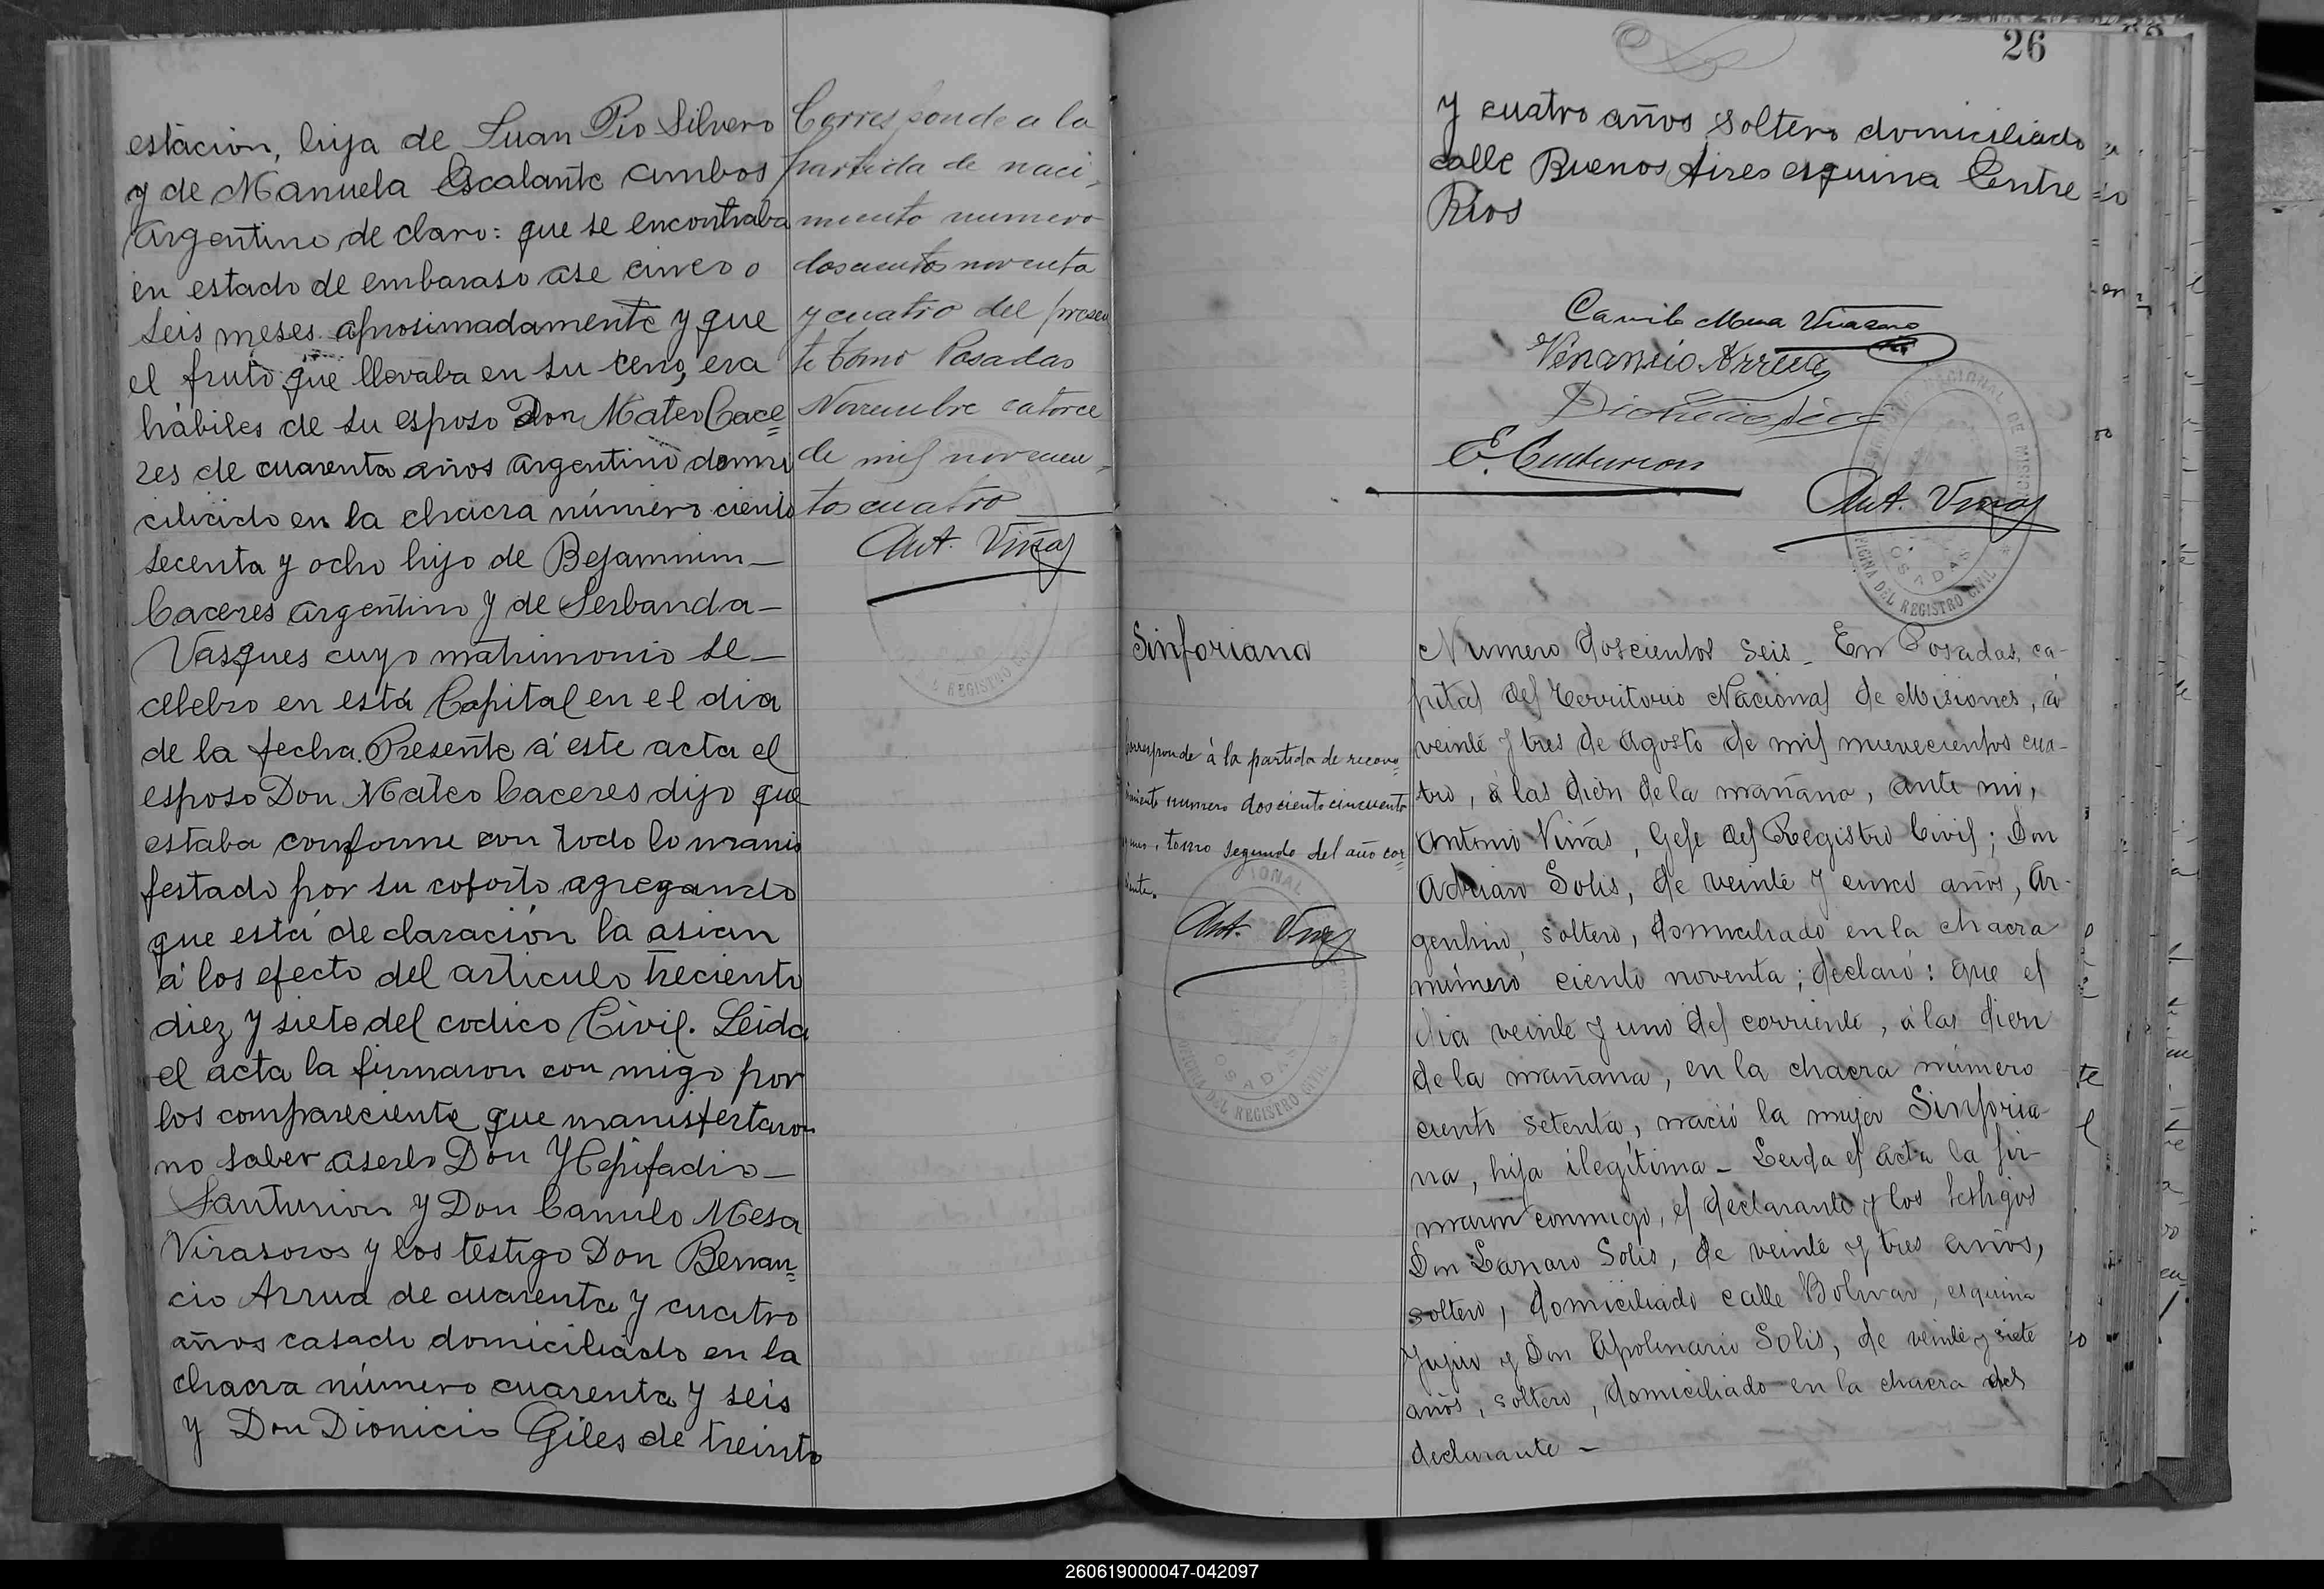 estacion, hija de Juan Pio Silvero
y de Manuela Escalante ambos
Argentino, de claro: que se encontraba
en estado de embaraso ase cinco o
seis meses aprosimadamente y que
el fruto que llevaba en su ceno, era
hábiles de su esposo Don Mateo Cace=
res de cuarenta años argentino domi
ciliado en la chacra número ciento
secenta y ocho hijo de Bejamnim—
Caceres argentino y de Serbanda—
Vasques cuyo matrimonio se—
celebro en está Capital en el dia
de la fecha. Presente á este acta el
esposo Don Mateo Caceres dijo que
estaba conforme con todo lo mani
festado por su coforto agregando
que está de claración la asian
á los efecto del articulo treciento
diez y siete del codico Civil. Leida
el acta la firmaron con migo por
los compareciente que manisfertaron
no saber aserlo Don Hepifadio—
Santurion y Don Camilo Mesa
Virasoros y los testigo Don Benan=
cio Arrua de cuarenta y cuatro
años casado domiciliado en la
chacra número cuarenta y seis
y Don Dionicio Giles de treinta
Corresponde a la
partida de naci-
miento numero
doscientos noventa
y cuatro del presen
te tomo Posadas
Noviembre catorce
de mil novecien-
tos cuatro
Ant. Viñas
26
y cuatro años soltero domiciliado
calle Buenos Aires esquina Entre
Rios
Camilo Mesa Virasoro
Venancio Arrua
E. Centurion
Ant. Viñas
OFICINA DEL REGISTRO CIVIL
POSADAS
Sinforiana
Corresponde á la partida de recono=
cimiento numero dosciento cincuenta
y uno, tomo segundo del año cor=
riente.
Ant. Viñas
OFICINA DEL REGISTRO CIVIL
POSADAS
Numero doscientos seis - En Posadas, ca-
pital del Territorio Nacional de Misiones, á
veinte y tres de Agosto de mil nuevecientos cua-
tro, á las diez de la mañana, ante mi,
Antonio Viñas, Gefe del Registro Civil; Don
Adrian Solis, de veinte y cinco años, Ar-
gentino, soltero, domiciliado en la chacra
número ciento noventa; declaró: que el
dia veinte y uno del corriente, á las diez
de la mañana, en la chacra número
ciento setenta, nació la mujer Sinforia-
na, hija ilegítima - Leida el acta la fir-
maron conmigo, el declarante y los testigos
Don Lázaro Solis, de veinte y tres años,
soltero, domiciliado calle Bolivar, esquina
Jujuy y Don Apolinario Solis, de veinte y siete
años, soltero, domiciliado en la chacra del
declarante -
260619000047-042097